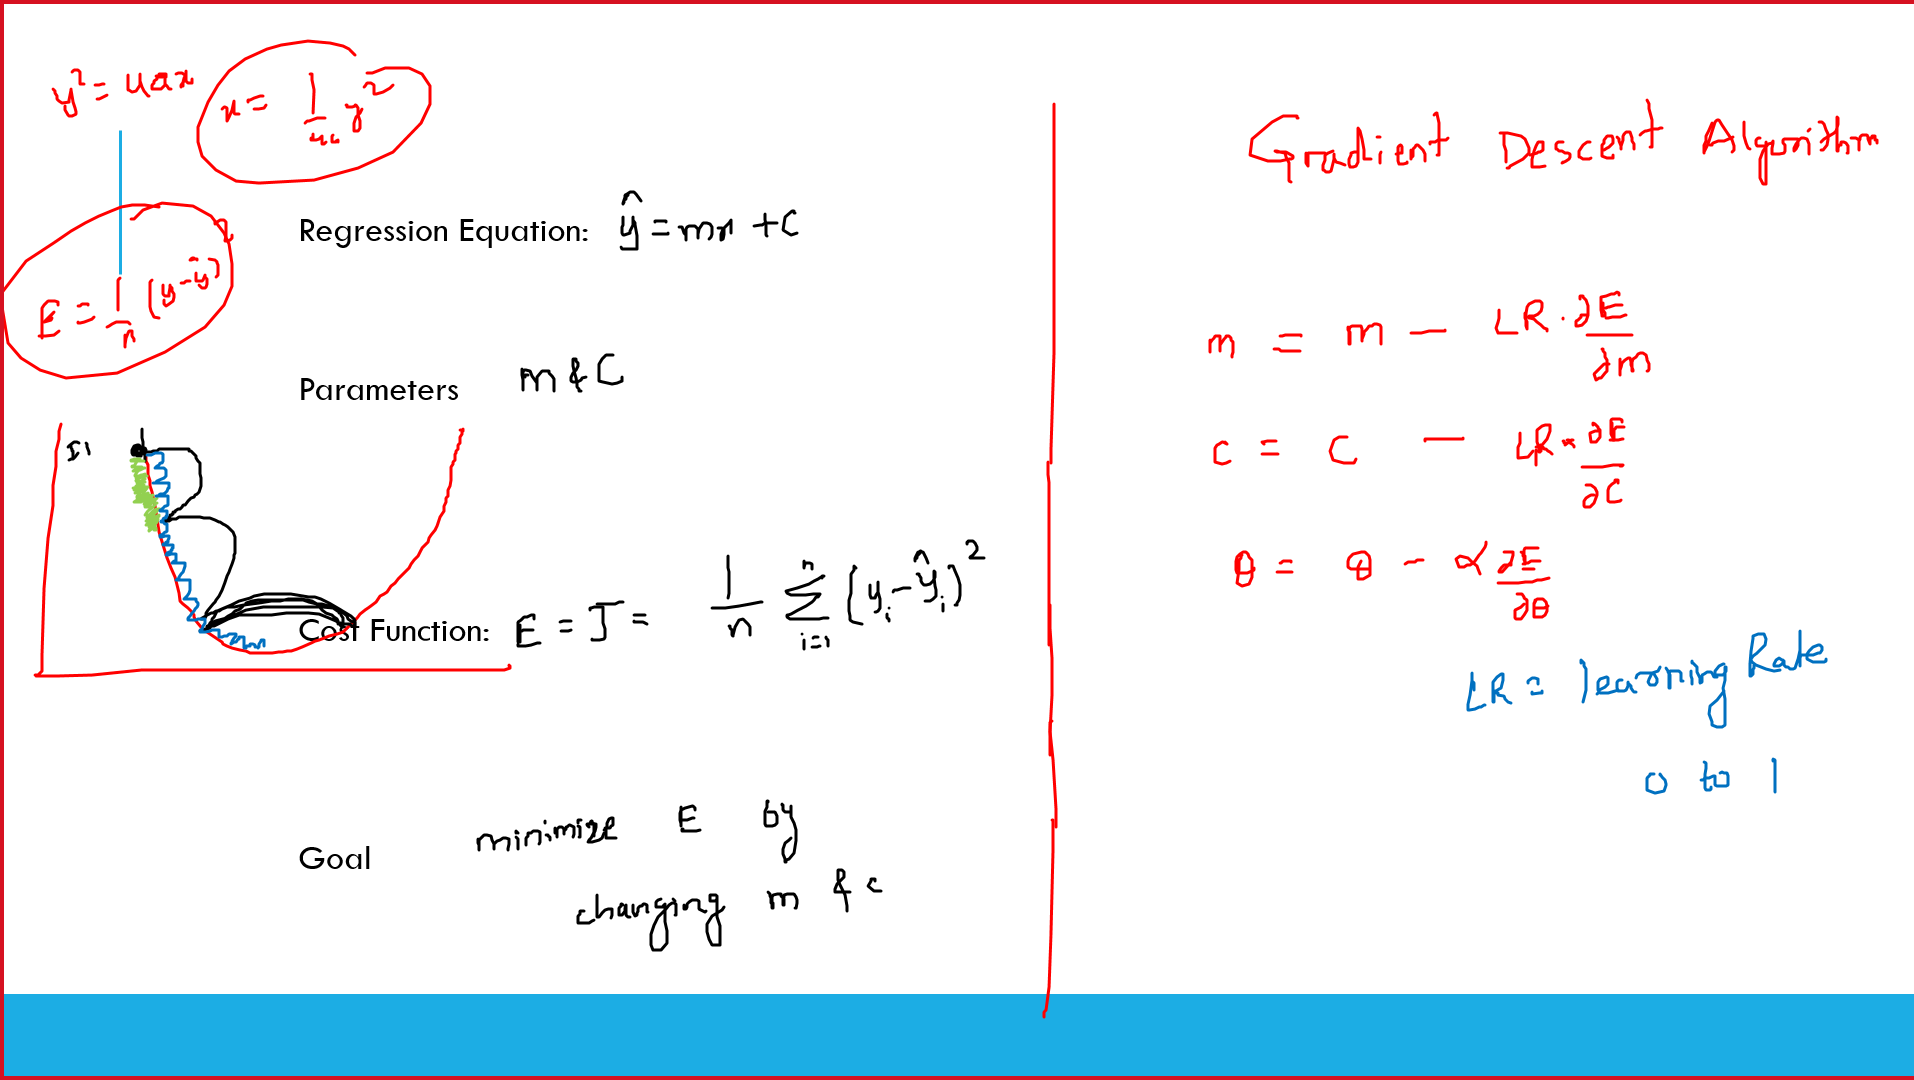 y² = 4ax
x = 1/4a y²
Regression Equation: ŷ = mx + C
E = 1/n (y - ŷ)²
Parameters m & C
I1
Cost Function: E = J = 1/n Σ i=1 n (yᵢ - ŷᵢ)²
Goal minimize E by
changing m & c
Gradient Descent Algorithm
m = m - LR . ∂E/∂m
c = C - LR * ∂E/∂C
θ = θ - α ∂E/∂θ
LR = learning Rate
0 to 1